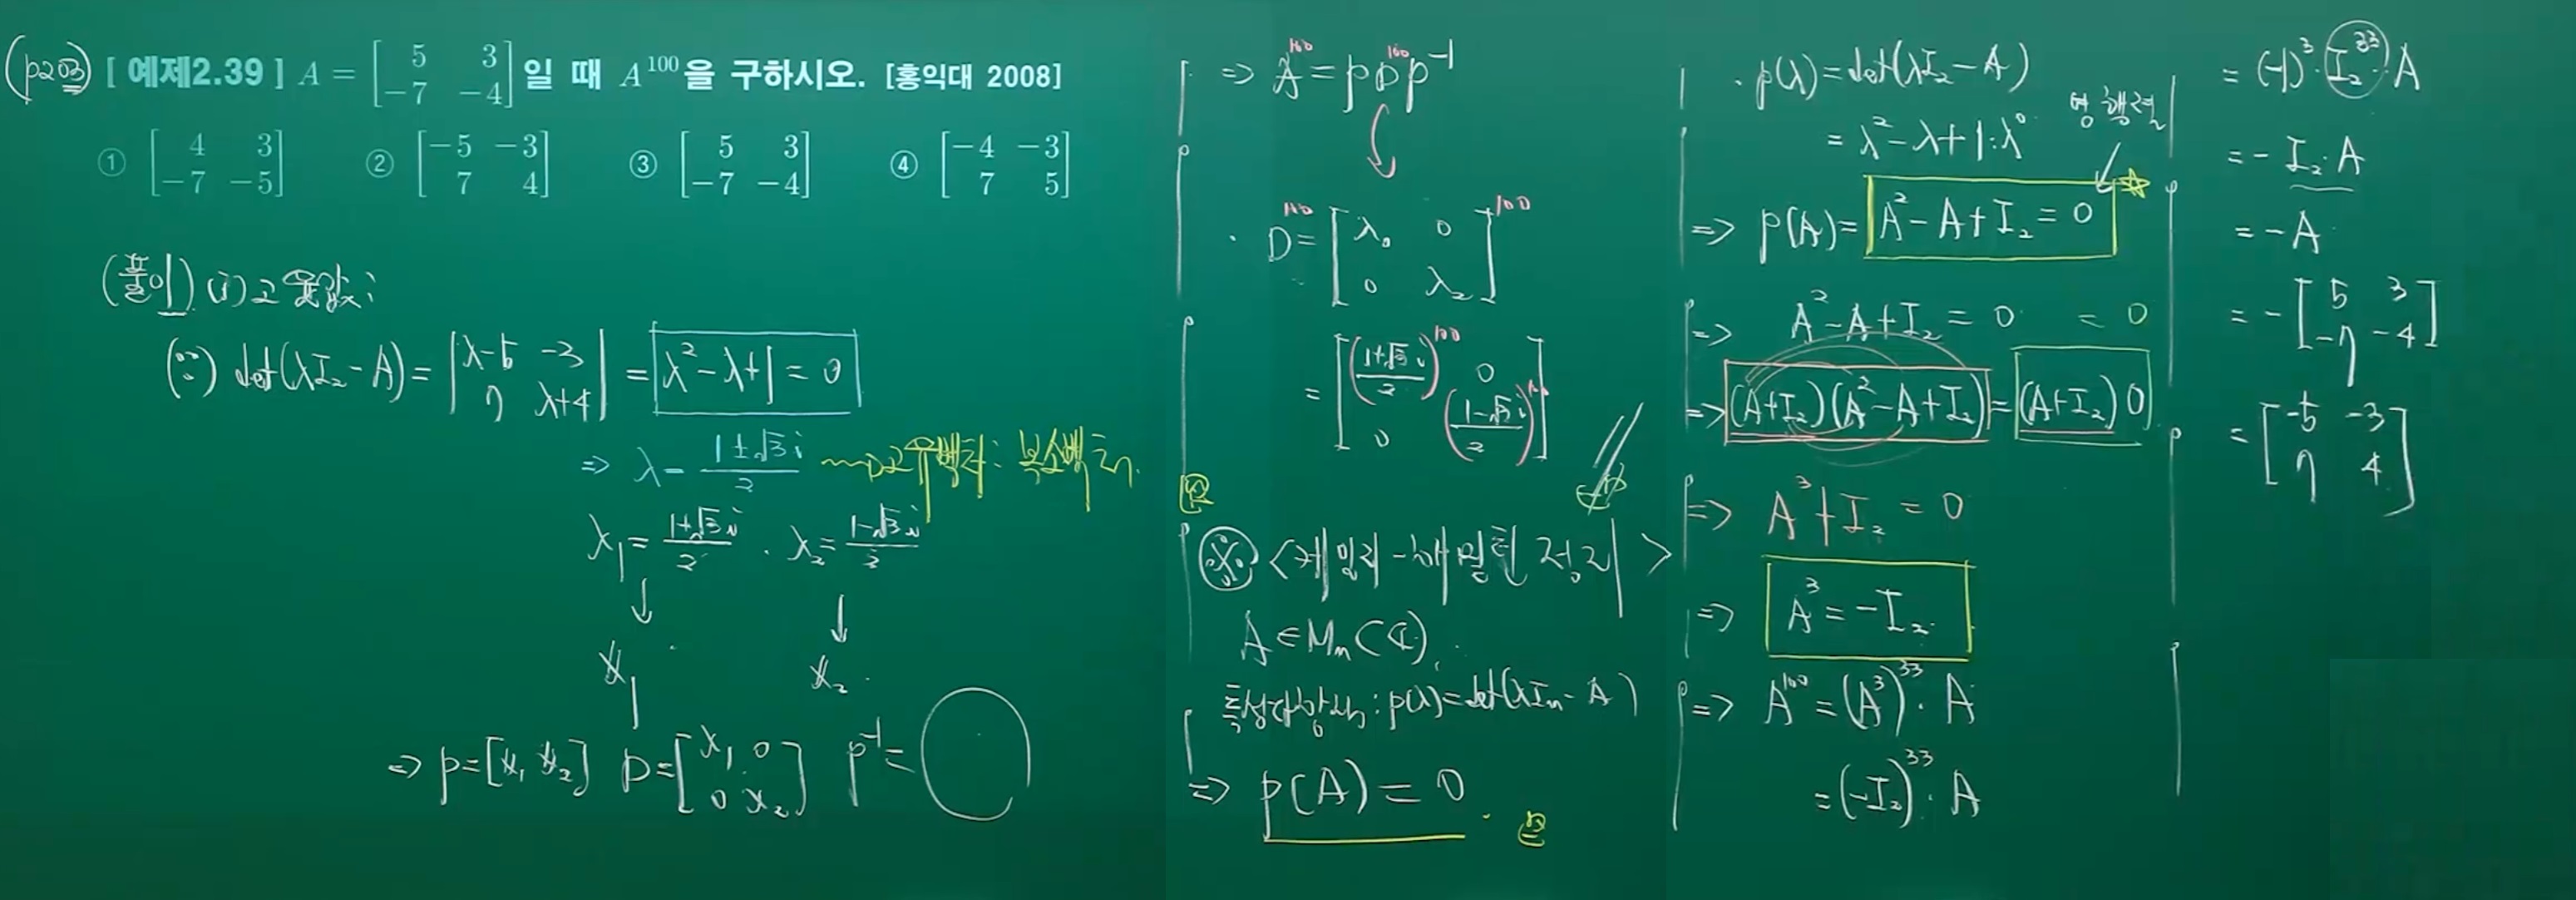 (p203) [ 예제2.39 ] A = [5 3; -7 -4] 일 때 A^100 을 구하시오. [홍익대 2008]
① [4 3; -7 -5] ② [-5 -3; 7 4] ③ [5 3; -7 -4] ④ [-4 -3; 7 5]
(풀이) (1) 고윳값;
(∵) det(λI₂ - A) = |λ-5 -3; 7 λ+4| = λ² - λ + 1 = 0
⇒ λ = (1±√3 i)/2 → 고유벡터: 복소벡터.
λ₁ = (1+√3 i)/2 . λ₂ = (1-√3 i)/2
↓ ↓
x₁ x₂
⇒ P = [x₁ x₂] D = [λ₁ 0; 0 λ₂] P⁻¹ =
⇒ A^100 = P D^100 P⁻¹
· D^100 = [λ₁ 0; 0 λ₂]^100
= [((1+√3 i)/2)^100 0; 0 ((1-√3 i)/2)^100]
※ <케일리-해밀턴 정리>
A ∈ Mₙ(ℂ).
특성다항식 : p(λ) = det(λIₙ - A)
⇒ p(A) = 0.
· p(λ) = det(λI₂ - A)
= λ² - λ + 1·λ⁰
영행렬
⇒ p(A) = A² - A + I₂ = 0 ☆
⇒ A² - A + I₂ = 0 = 0
⇒ (A+I₂)(A² - A + I₂) = (A+I₂) 0
⇒ A³ + I₂ = 0
⇒ A³ = -I₂
⇒ A^100 = (A³)^33 · A
= (-I₂)^33 · A
= (-1)^3 · I₂^33 · A
= - I₂ · A
= - A
= - [5 3; -7 -4]
= [-5 -3; 7 4]